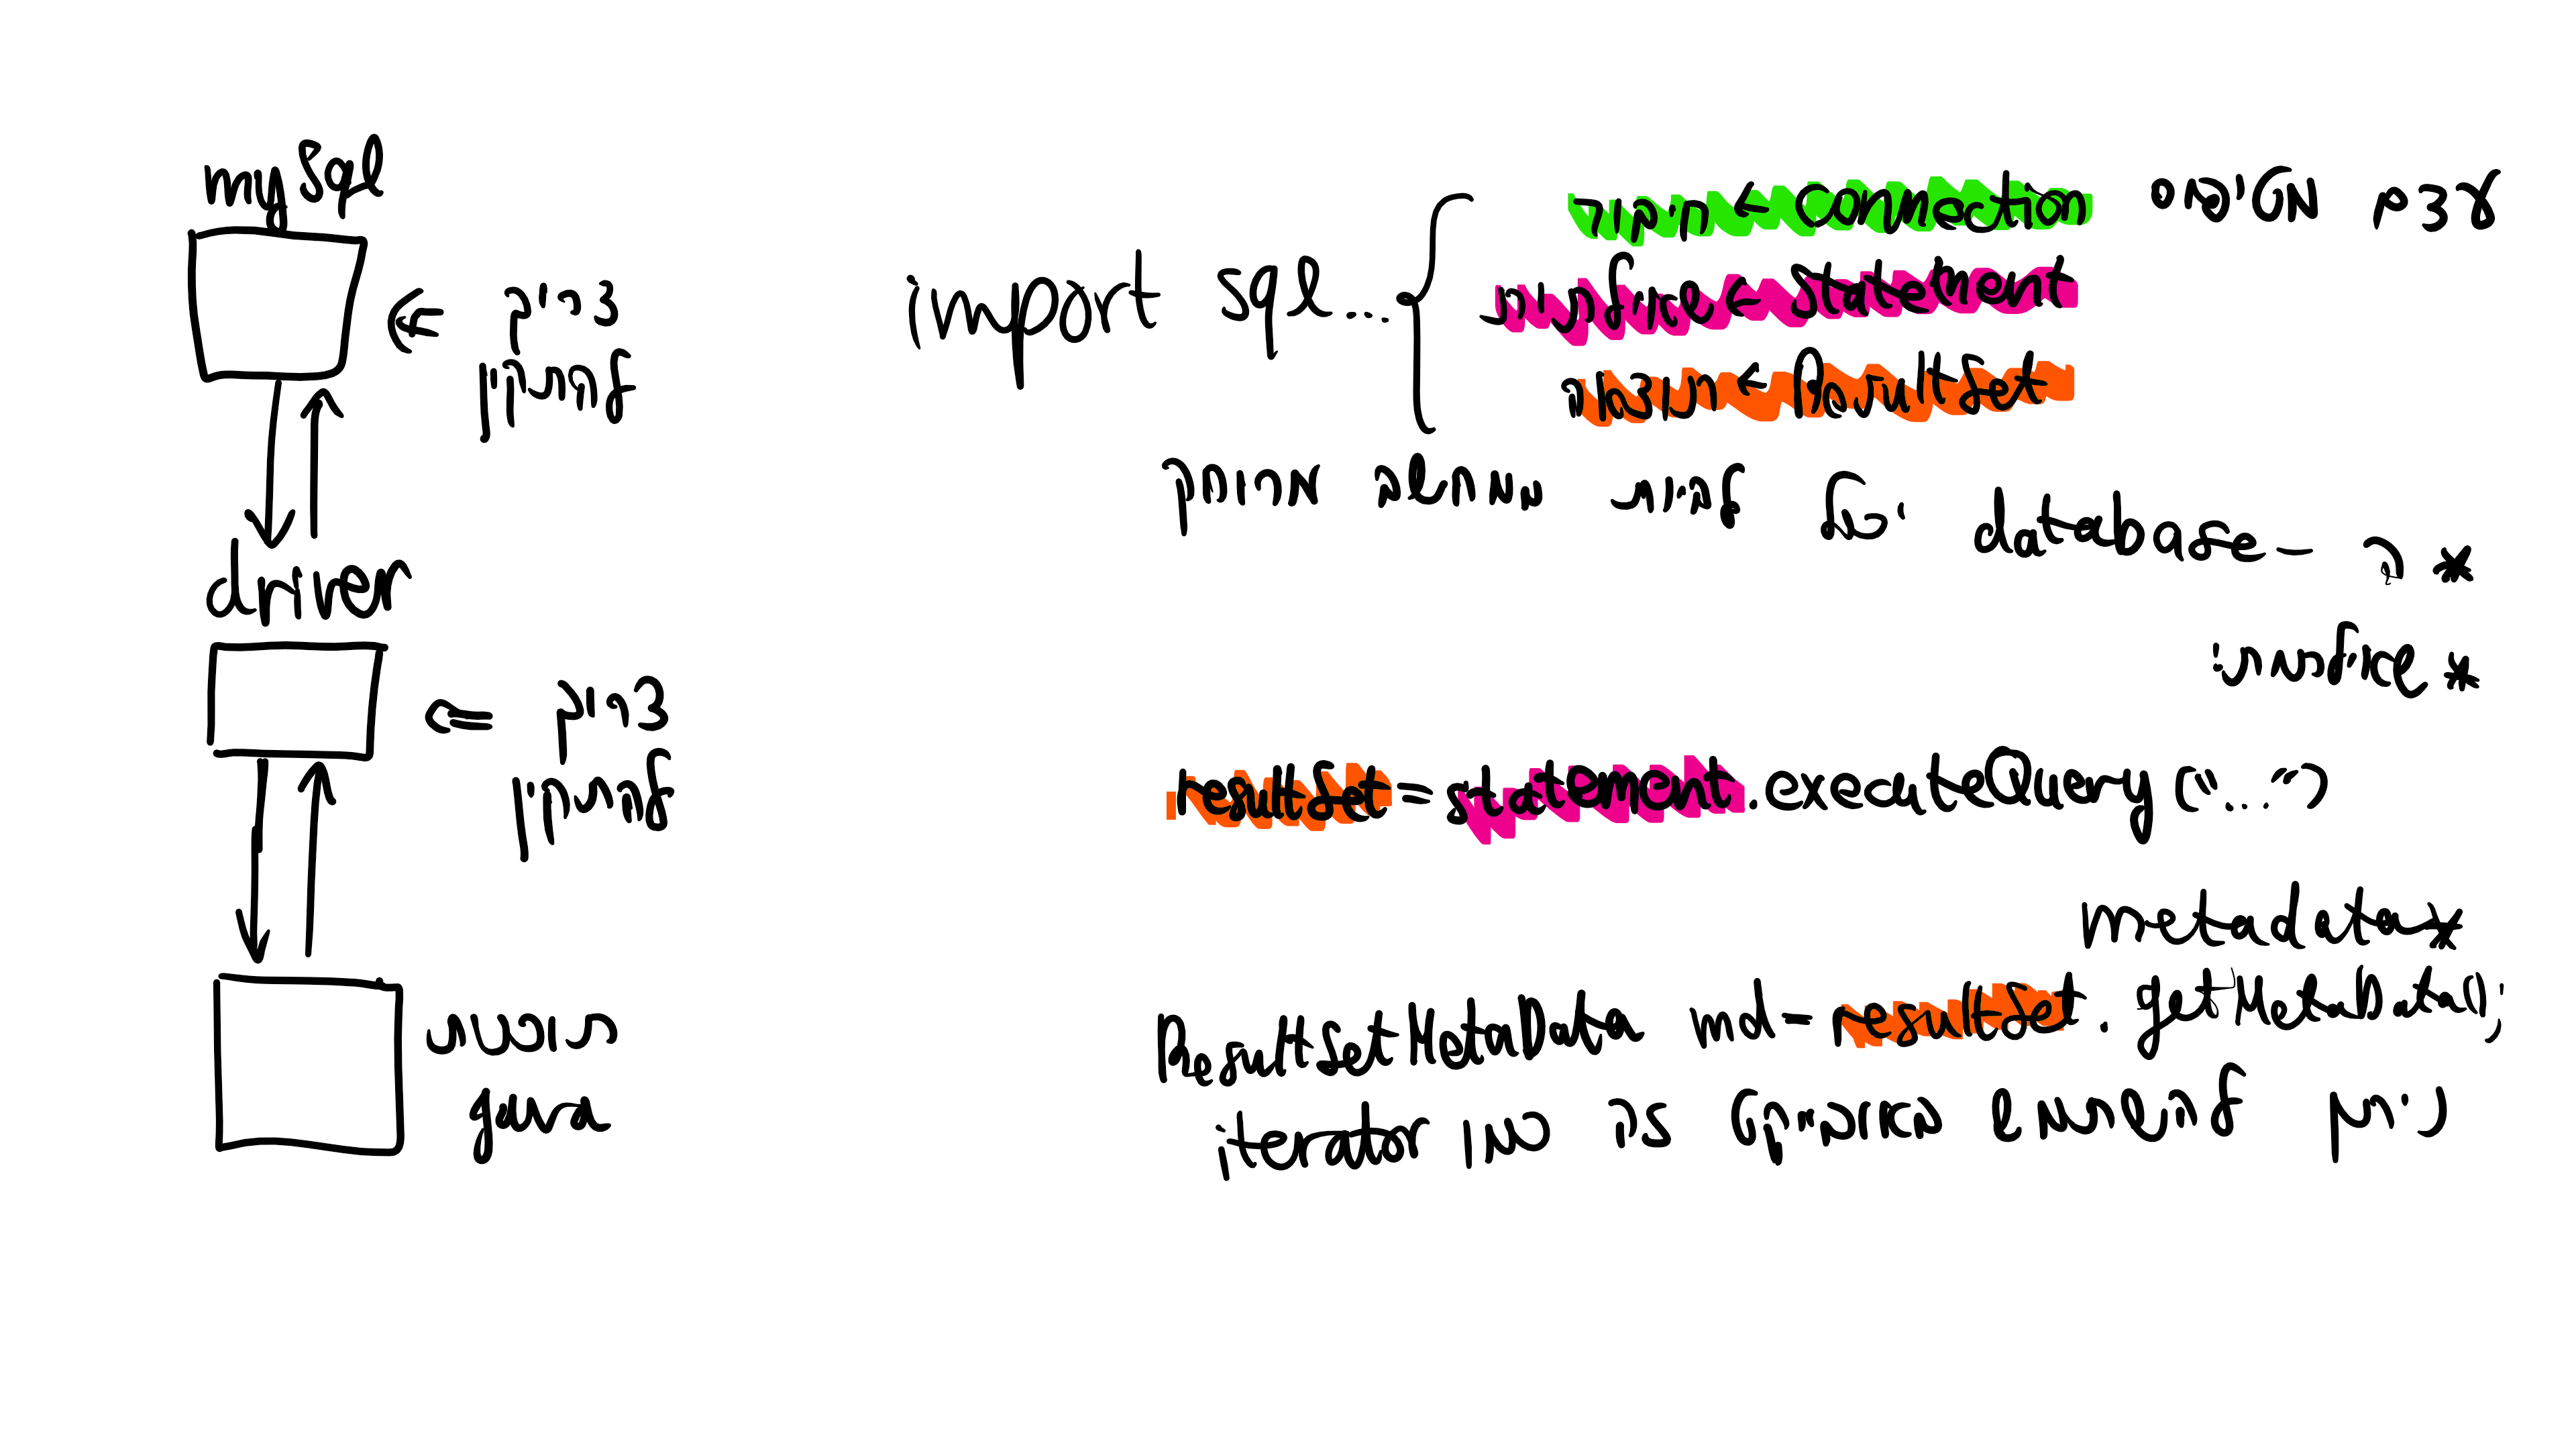 mySql
צריך
להתקין
driver
צריך
להתקין
תוכנת
java
עצם מטיפוס Connection ← חיבור
import sql...
Statement ← שאילתות
ResultSet ← תוצאה
* ה - database יכול להיות ממחשב מרוחק
* שאילתות:
resultSet = statement.executeQuery ("...")
* metadata
ResultSetMetaData md = resultSet.getMetaData();
ניתן להשתמש באובייקט זה כמו iterator